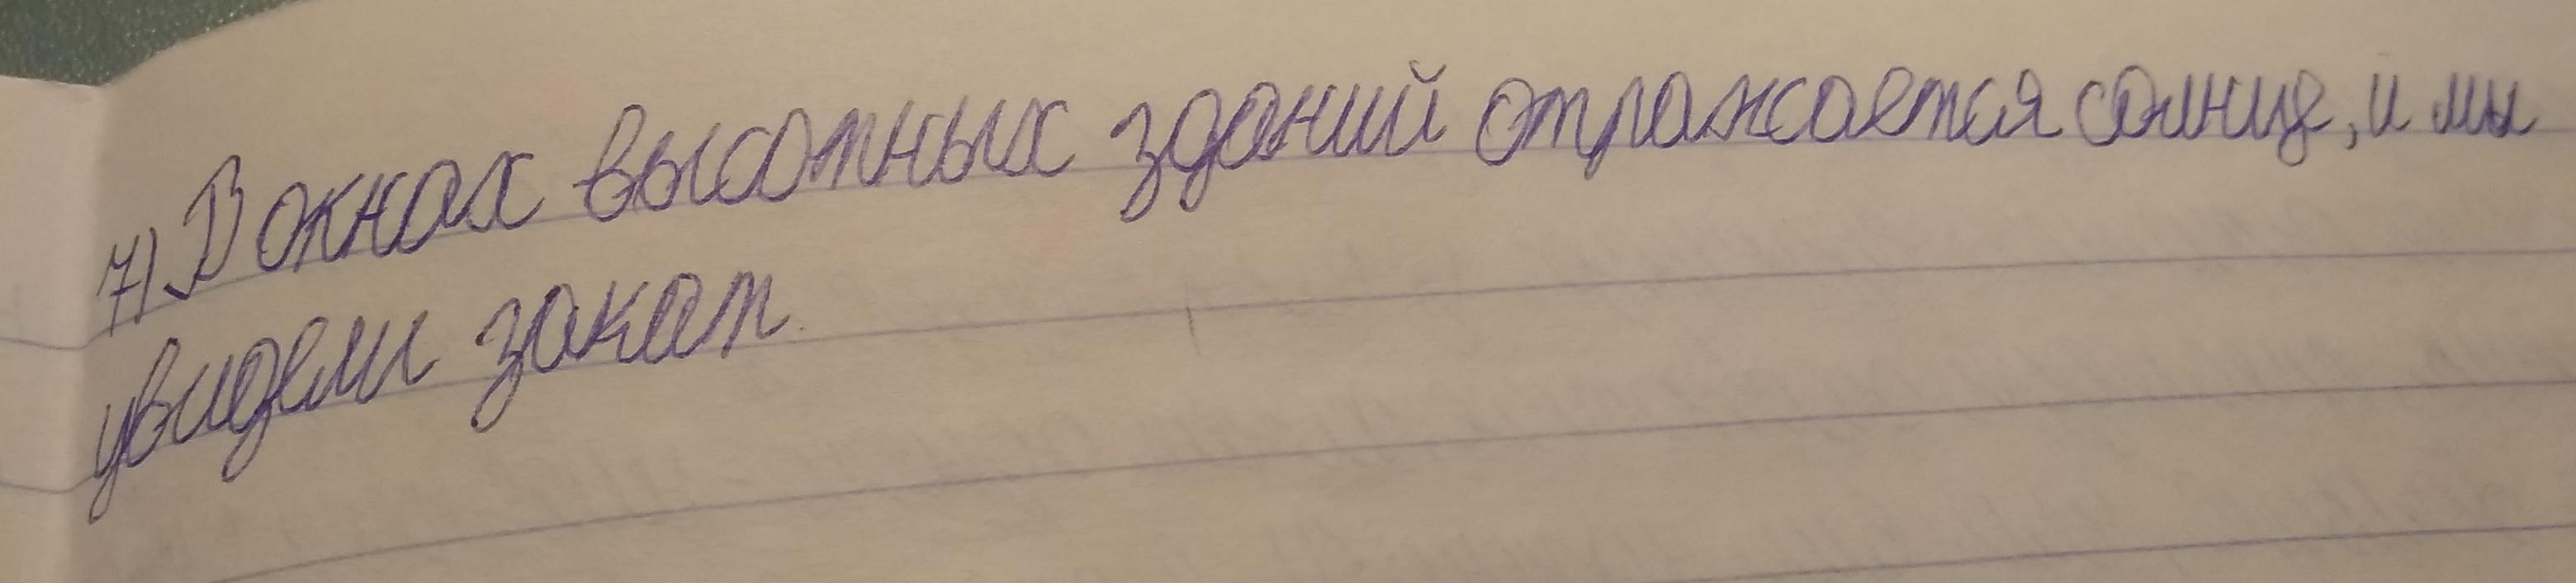 7) В окнах высотных зданий отражается солнце, и мы
увидели закат.